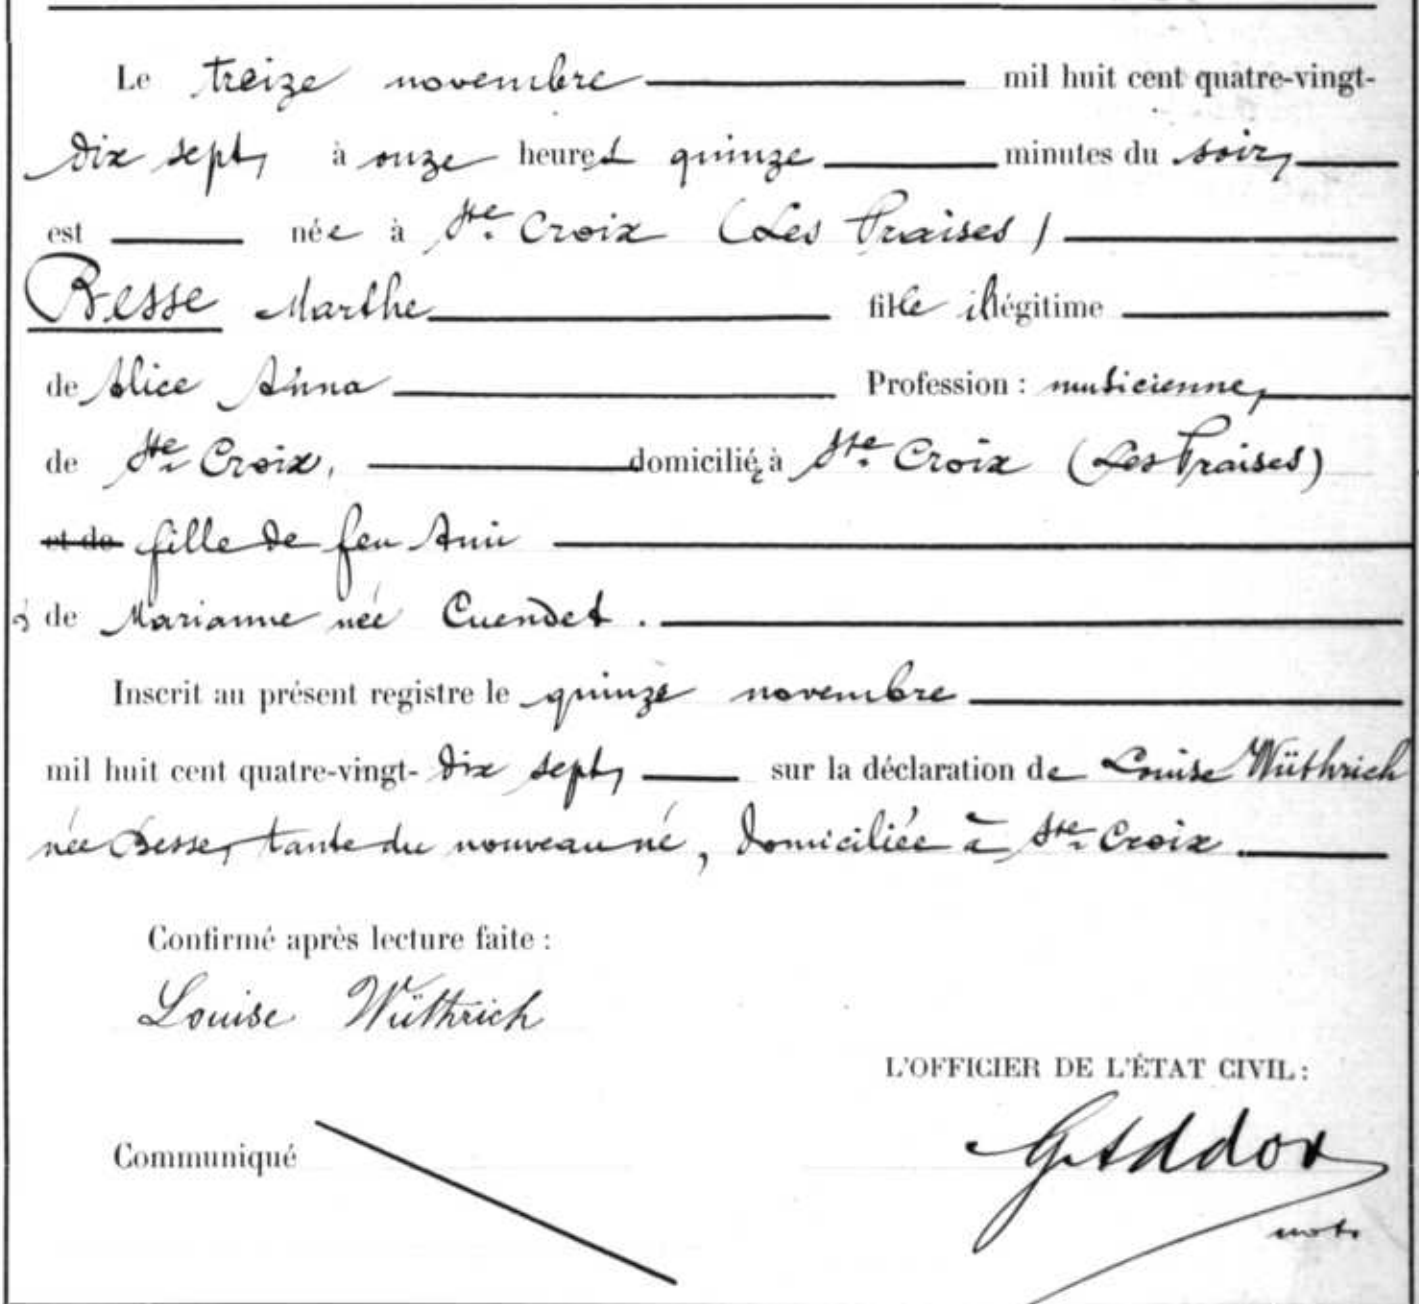 Le treize novembre mil huit cent quatre-vingt-
dix sept, à onze heures quinze minutes du soir,
est née à Ste. Croix (Les Praises)
Besse Marthe fille illégitime
de Alice Anna Profession : musicienne,
de Ste. Croix, domiciliée à Ste. Croix (Les Praises)
et de fille de feu Ami
& de Marianne née Cuendet.
Inscrit au présent registre le quinze novembre
mil huit cent quatre-vingt- dix sept, sur la déclaration de Louise Wüthrich
née Besse, tante du nouveau né, domiciliée à Ste. Croix
Confirmé après lecture faite :
Louise Wüthrich
L'OFFICIER DE L'ÉTAT CIVIL :
Communiqué